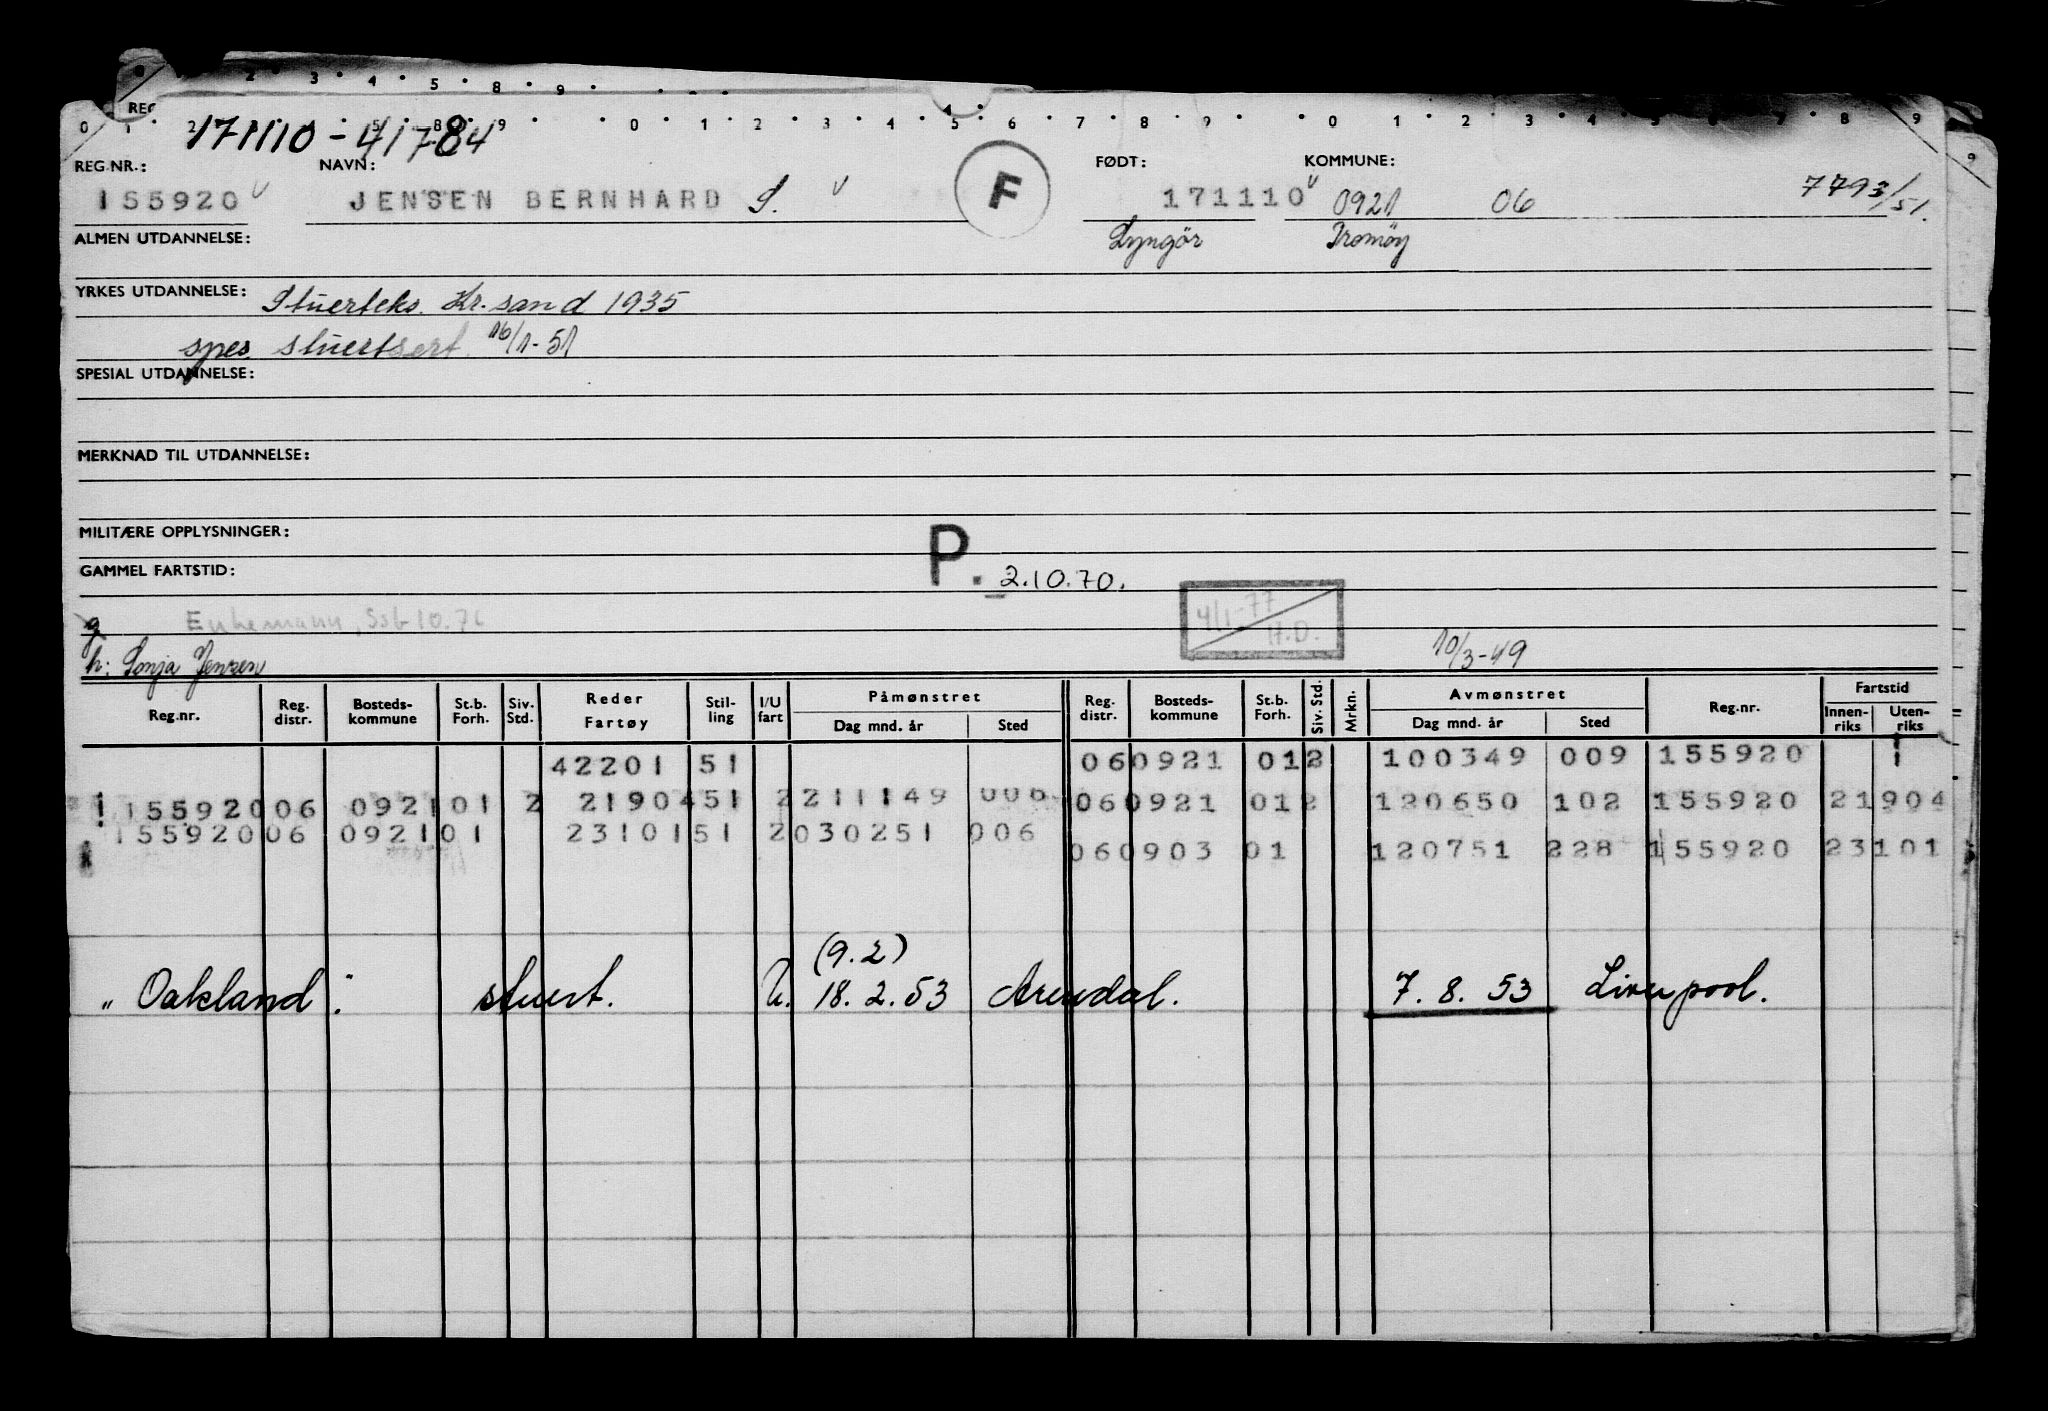 2 3 4 5 8 9
REG
0 1 2 5 8 9 0 1 2 3 4 5 6 7 8 9 0 1 2 3 4 5 6 7 8 9
171110-41784
REG.NR.: NAVN: F FØDT: KOMMUNE:
155920 JENSEN BERNHARD S. 171110 0921 06 7793/51.
ALMEN UTDANNELSE: Lyngör Tromöy
YRKES UTDANNELSE: Stuerteks. Kr.sand 1935
spes. stuertsert. 16/1-51
SPESIAL UTDANNELSE:
MERKNAD TIL UTDANNELSE:
MILITÆRE OPPLYSNINGER:
GAMMEL FARTSTID: P. 2.10.70.
g Enkemann, 4/1-77 H.D.
h: Sonja Jensen 10/3-49
Reg.nr. Reg. distr. Bosteds-kommune St.b. Forh. Siv. Std. Reder Fartøy Stil-ling I/U fart Påmønstret Dag mnd. år Sted Reg. distr. Bosteds-kommune St.b. Forh. Siv. Std. Mrkn. Avmønstret Dag mnd. år Sted Reg.nr. Fartstid Innen-riks Uten-riks
42201 51 06 0921 01 2 100349 009 155920 1
155920 06 0921 01 2 21904 51 2 211149 006 06 0921 01 2 120650 102 155920 21904
155920 06 0921 01 23101 51 2 030251 006 06 0903 01 120751 228 155920 23101
(9.2)
"Oakland". stuert. U. 18.2.53 Arendal. 7.8.53 Liverpool.